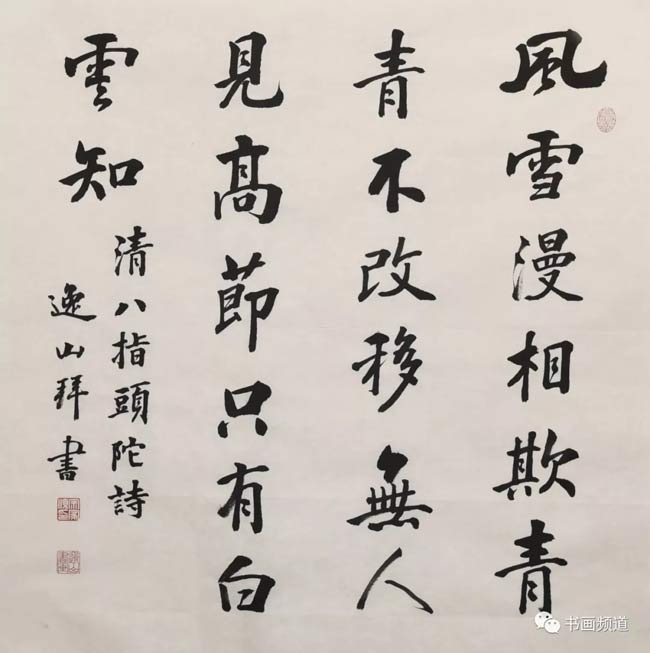 風雪漫相欺青
青不改移無人
見高節只有白
雲知
清八指頭陀詩
逸山拜書
书画频道